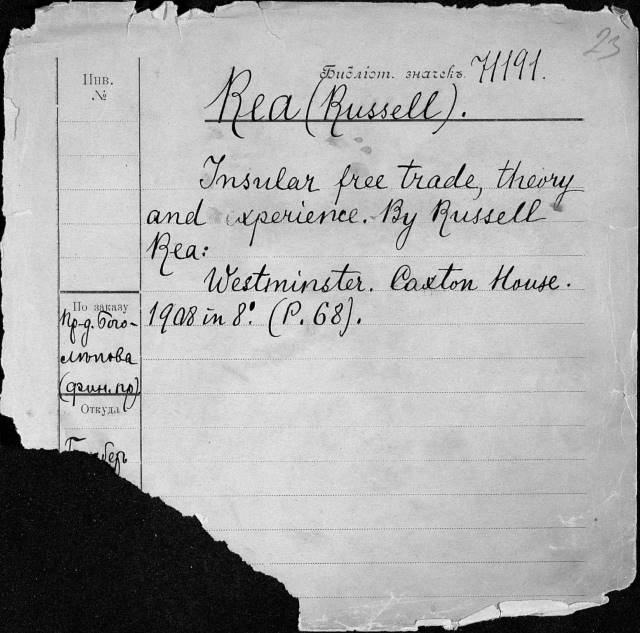 23
Инв.
№
Библіот. значекъ 71191.
Rea (Russell).
Insular free trade, theory
and experience. By Russell
Rea:
Westminster. Caxton House.
1908 in 8°. (P. 68).
По заказу
Пр-д. Бого-
лѣпова
(фин. пр)
Откуда